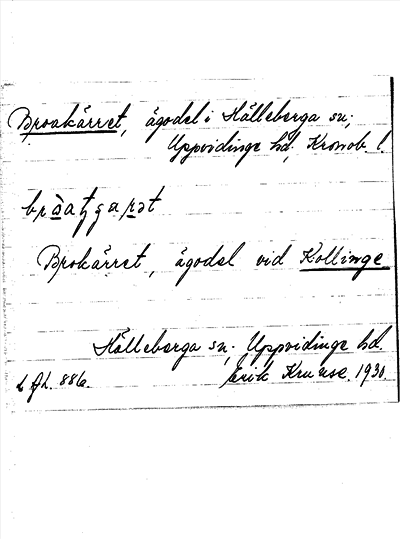 Broakärret, ägodel i Hälleberga sn;
Uppvidinge hd, Kronob. l.
bròatʒaret
Brokärret, ägodel vid Kollinge
Hälleberga sn; Uppvidinge hd.
886. Erik Kruuse. 1930.